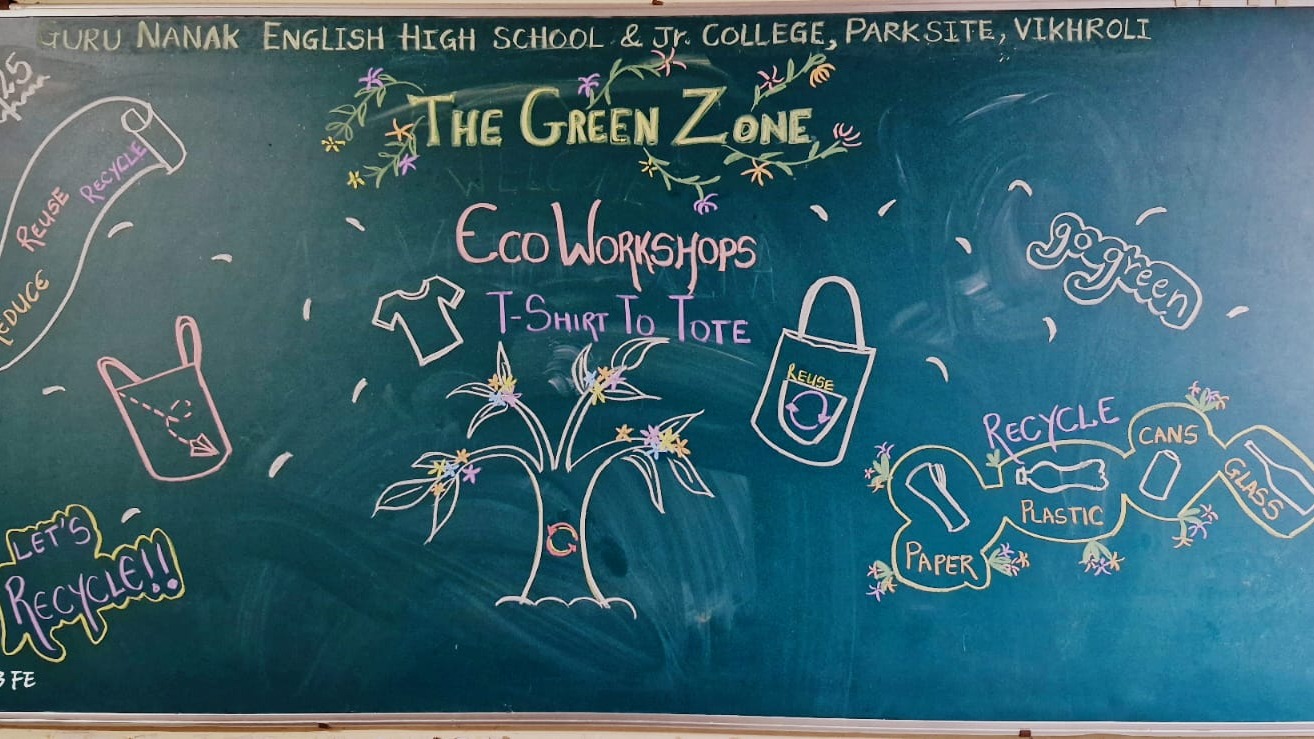 GURU NANAK ENGLISH HIGH SCHOOL & Jr. COLLEGE, PARKSITE, VIKHROLI
25
THE GREEN ZONE
REDUCE REUSE RECYCLE
ECO WORKSHOPS
T-SHIRT TO TOTE
go green
REUSE
RECYCLE
CANS
GLASS
PLASTIC
PAPER
LET'S
RECYCLE!!
FE